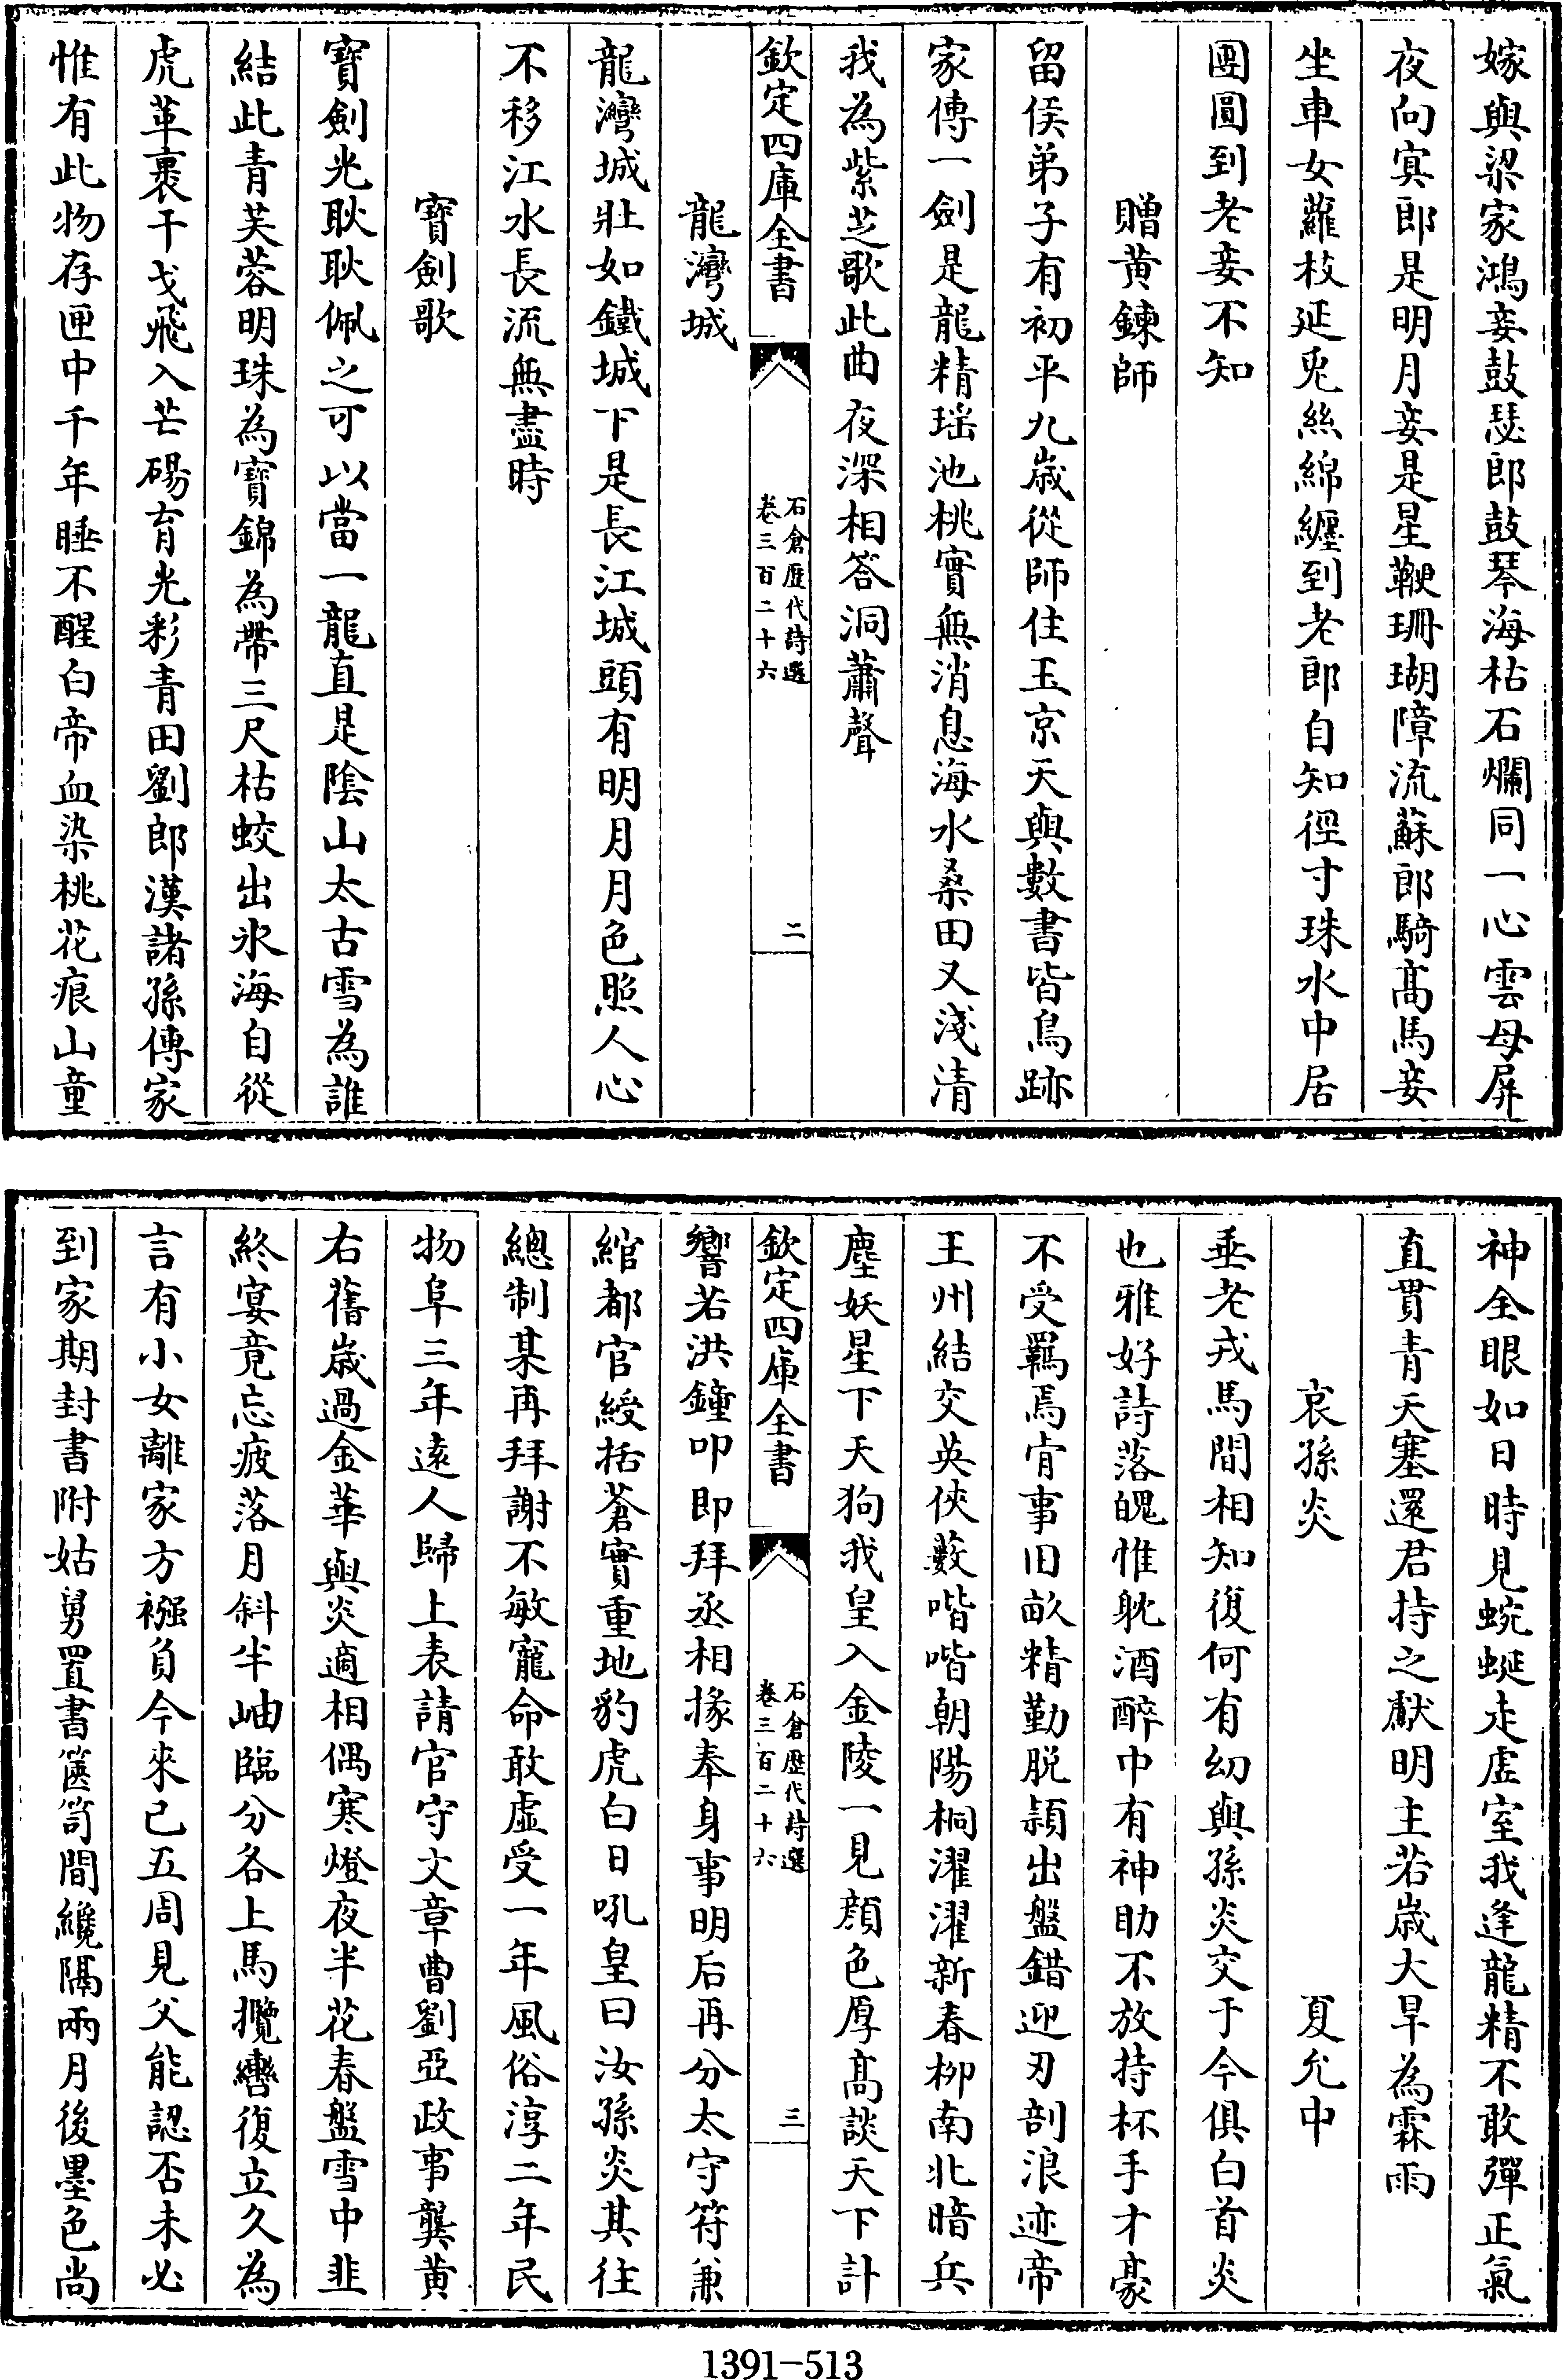 嫁與梁家鴻妾鼓瑟郎鼓琴海枯石爛同一心雲母屏
夜向寞郎是明月妾是星鞭珊瑚障流蘇郎騎髙馬妾
坐車女蘿枝延兎絲綿纏到老郎自知徑寸珠水中居
團圓到老妾不知
贈黄鍊師
留侯弟子有初平九歳從師住玉京天與數書皆鳥跡
家傳一劍是龍精瑶池桃實無消息海水桑田又淺清
我為紫芝歌此曲夜深相答洞蕭聲
欽定四庫全書
石倉歴代詩選
卷三百二十六
二
龍灣城
龍灣城壯如鐵城下是長江城頭有明月月色照人心
不移江水長流無盡時
寳劍歌
寳劍光耿耿佩之可以當一龍直是陰山太古雪為誰
結此青芙蓉明珠為寳錦為帶三尺枯蛟出氷海自從
虎革裹干戈飛入芒碭育光彩青田劉郎漢諸孫傳家
惟有此物存匣中千年睡不醒白帝血染桃花痕山童
神全眼如日時見蜿蜒走虚室我逢龍精不敢彈正氣
直貫青天塞還君持之獻明主若歳大旱為霖雨
哀孫炎
夏允中
垂老戎馬間相知復何有幻與孫炎交于今俱白首炎
也雅好詩落魄惟躭酒醉中有神助不放持杯手才豪
不受羈焉肯事旧畝精勤脱頴出盤錯迎刃剖浪迹帝
王州結交英俠藪喈喈朝陽桐濯濯新春柳南北暗兵
塵妖星下天狗我皇入金陵一見顔色厚髙談天下計
欽定四庫全書
石倉歴代詩選
卷三百二十六
三
響若洪鐘叩即拜丞相掾奉身事明后再分太守符兼
綰都官綬括蒼實重地豹虎白日吼皇曰汝孫炎其往
總制某再拜謝不敏寵命敢虚受一年風俗淳二年民
物阜三年遠人歸上表請官守文章曹劉亞政事龔黄
右舊歳過金華與炎適相偶寒燈夜半花春盤雪中韭
終宴竟忘疲落月斜半岫臨分各上馬攬轡復立久為
言有小女離家方襁負今來已五周見父能認否未必
到家期封書附姑舅置書篋笥間纔隔兩月後墨色尚
1391-513